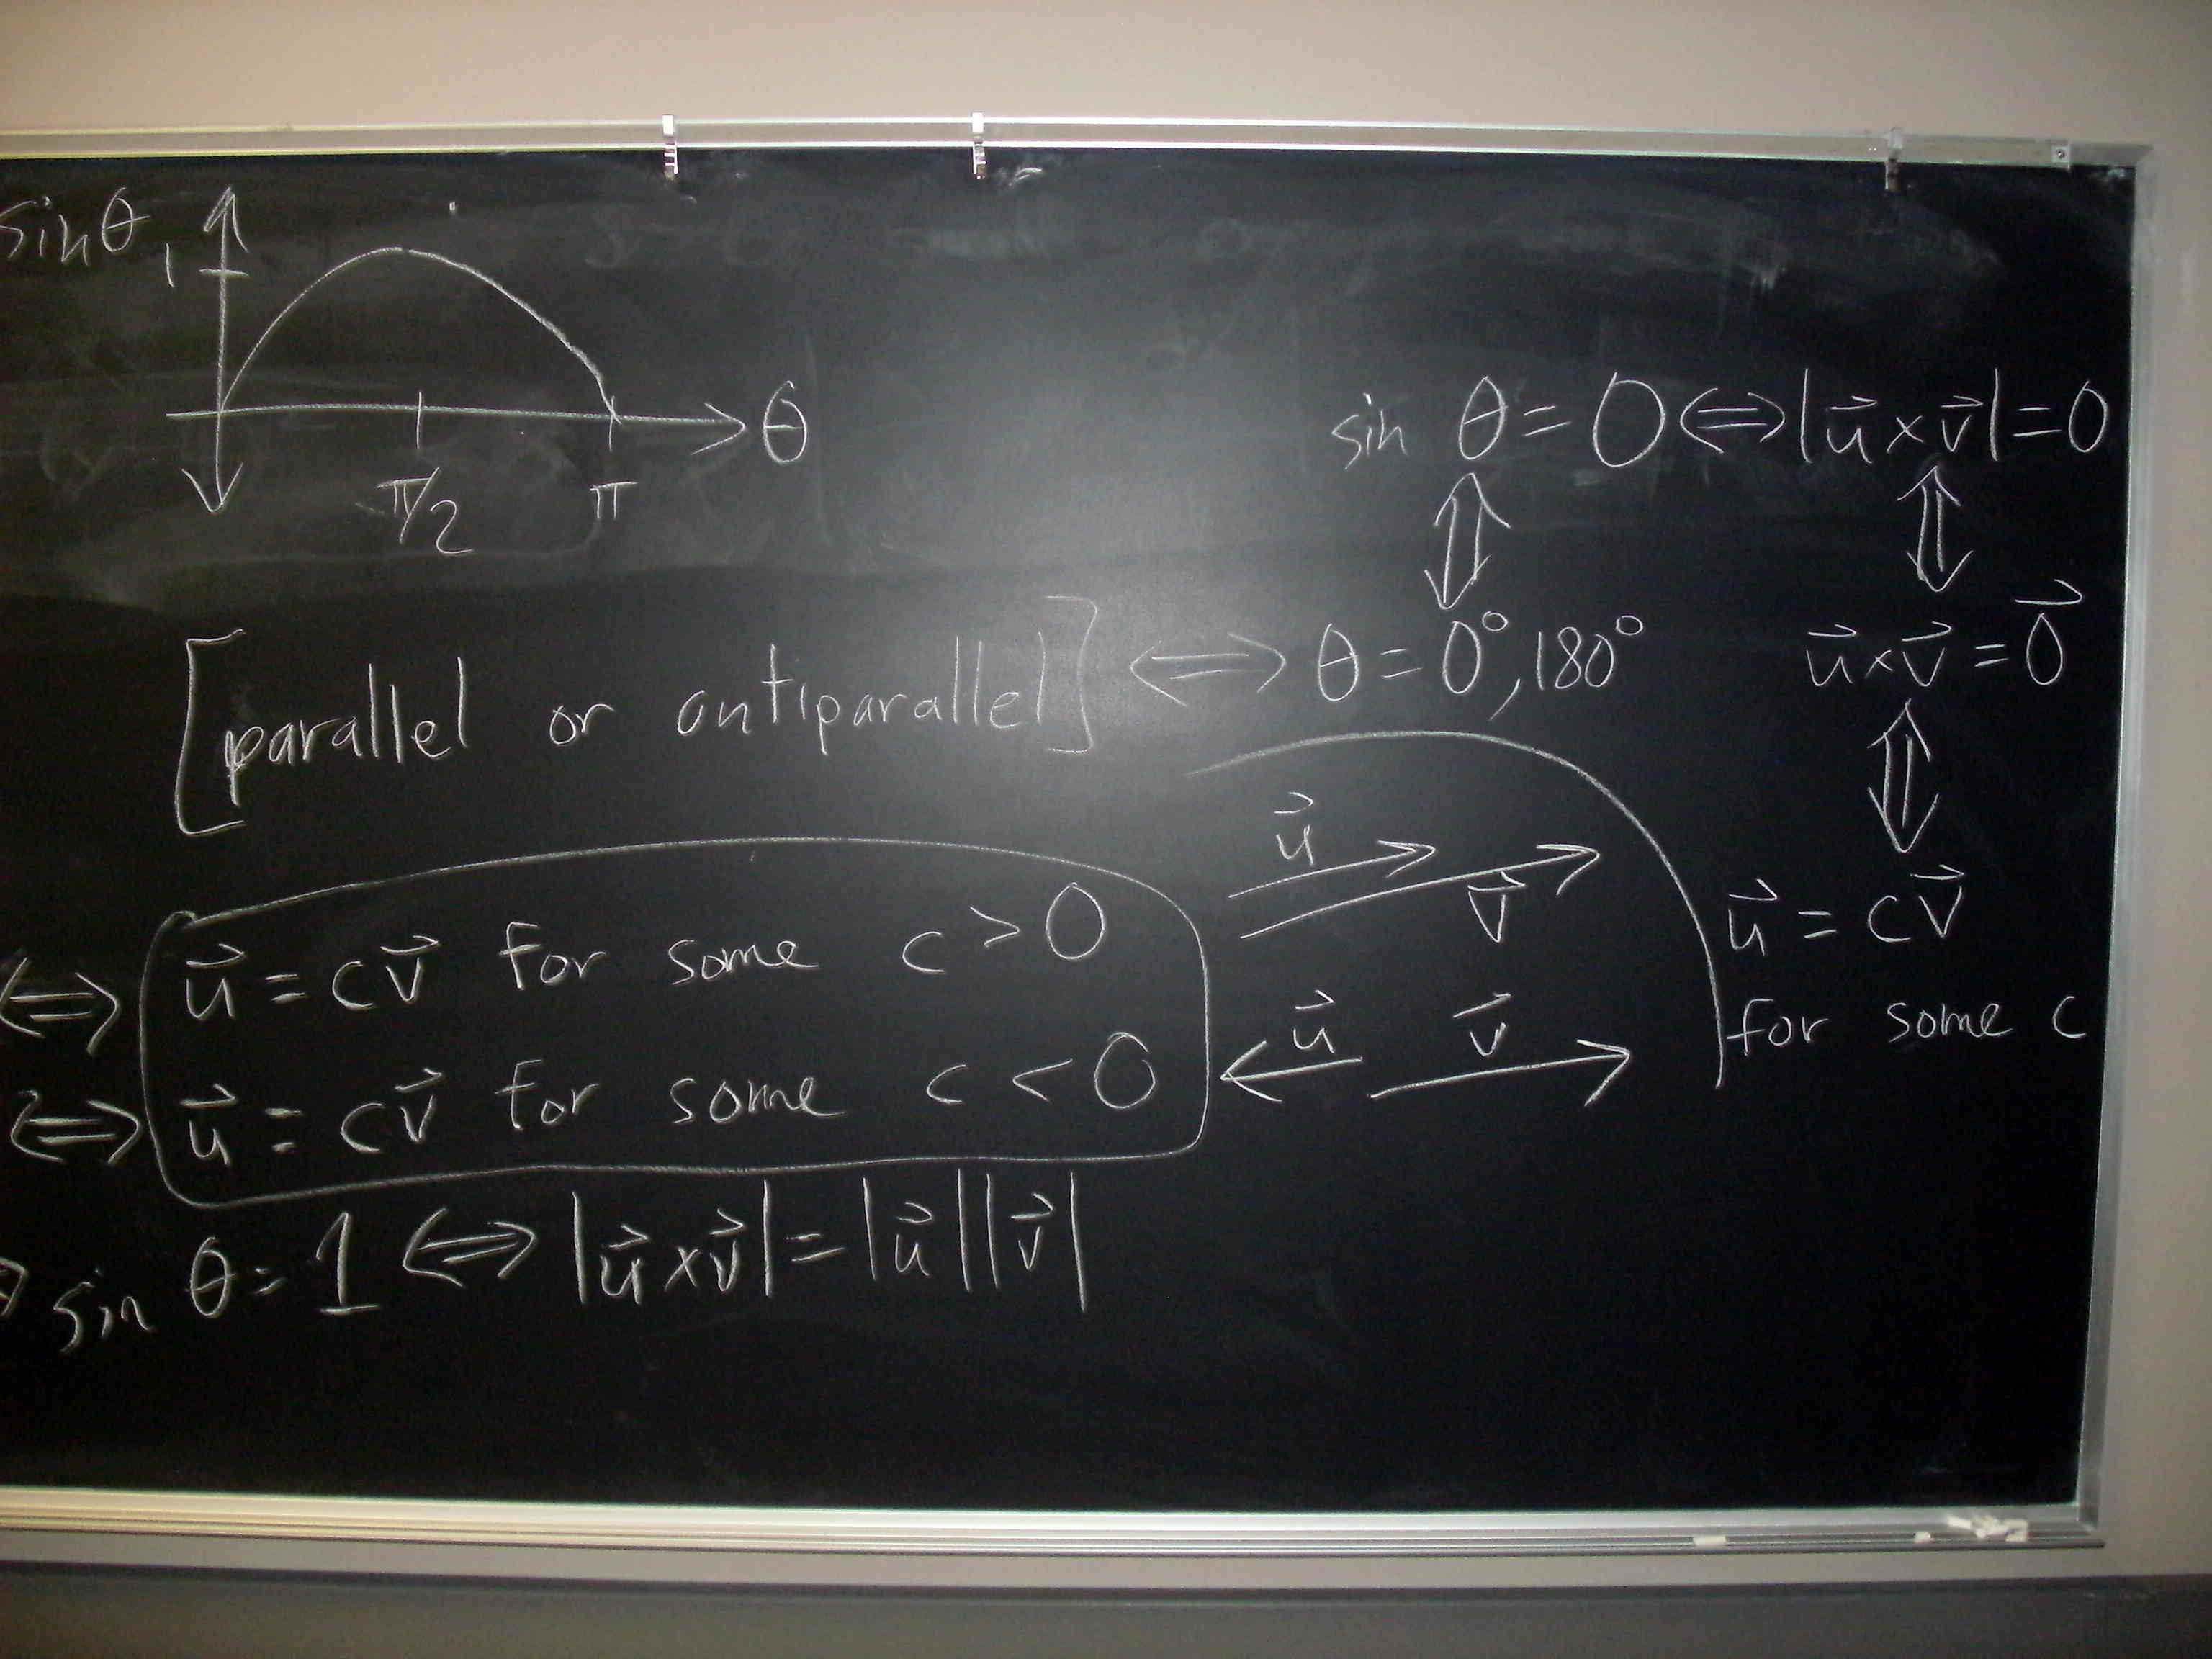 sin θ
1
θ
π/2
π
sin θ = 0 ⇔ |u⃗ × v⃗| = 0
⇕ ⇕
[parallel or antiparallel] ⇔ θ = 0°, 180°
u⃗ × v⃗ = 0⃗
⇕
u⃗
v⃗
u⃗ = cv⃗
for some c
⇔ u⃗ = cv⃗ for some c > 0
u⃗ v⃗
⇔ u⃗ = cv⃗ for some c < 0
sin θ = 1 ⇔ |u⃗ × v⃗| = |u⃗||v⃗|